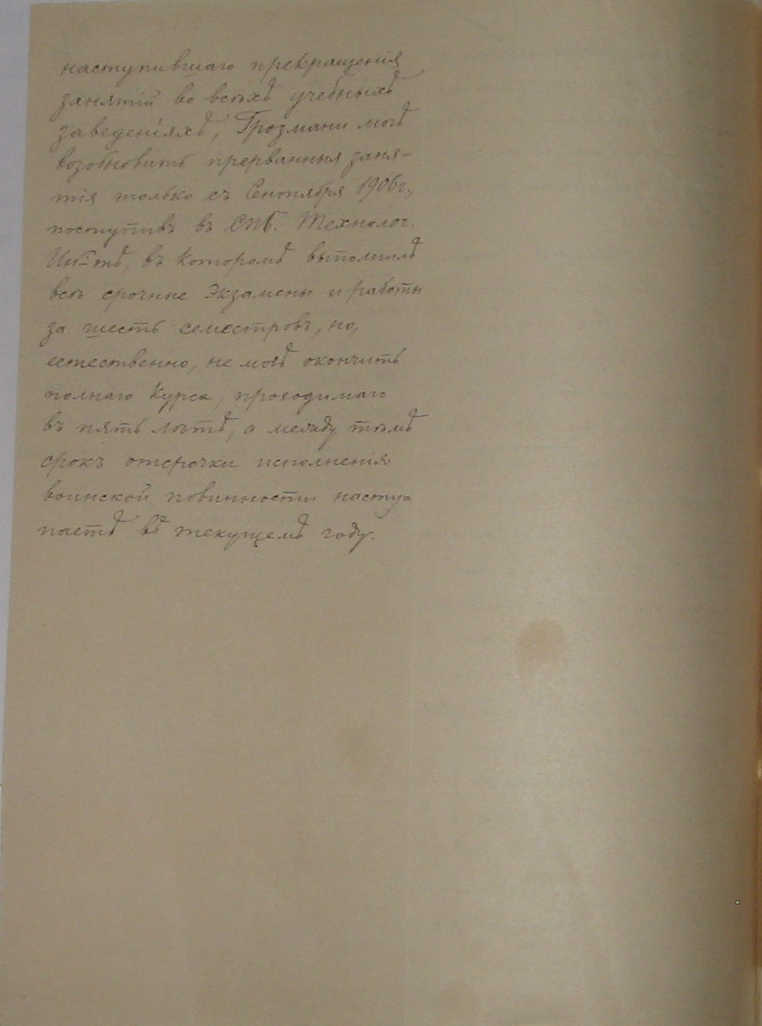 наступившаго прекращенія
занятій во всѣхъ учебныхъ
заведеніяхъ, Грозмани могъ
возобновить прерванныя заня-
тія только съ Сентября 1906 г.,
поступивъ въ СПб. Технолог.
Ин-тъ, въ которомъ выполнилъ
всѣ срочные экзамены и работы
за шесть семестровъ, но,
естественно, не могъ окончить
полнаго курса, проходимаго
въ пять лѣтъ, а между тѣмъ
срокъ отсрочки исполненія
воинской повинности насту-
паетъ въ текущемъ году.